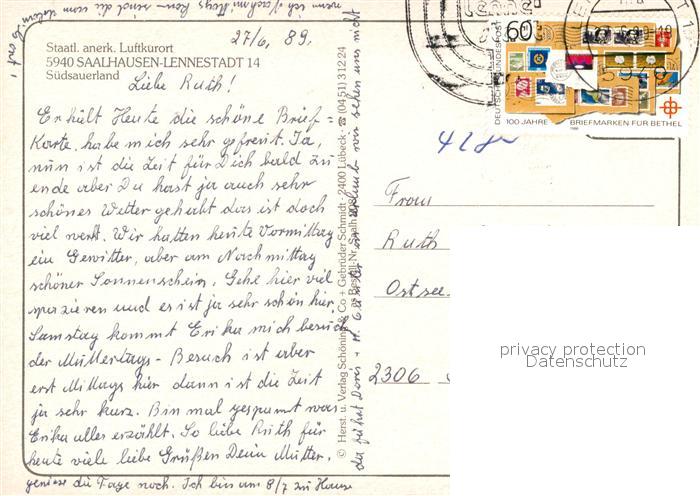 Staatl. anerk. Luftkurort
5940 SAALHAUSEN-LENNESTADT 14
Südsauerland
27/6. 89.
Liebe Ruth!
Erhielt Heute die schöne Brief=
Karte, habe mich sehr gefreut. Ja,
nun ist die Zeit für Dich bald zu
ende aber Du hast ja auch sehr
schönes Wetter gehabt das ist doch
viel wert. Wir hatten heute Vormittag
ein Gewitter, aber am Nachmittag
schöner Sonnenschein, Gehe hier viel
spazieren und es ist ja sehr schön hier,
Samstag kommt Erika mich besuch
der Muttertags-Besuch ist aber
erst Mittags hier dann ist die Zeit
ja sehr kurz. Bin mal gespannt was
Erika alles erzählt. So liebe Ruth für
heute viele liebe Grüßen Deine Mutter.
geniese die Tage noch. Ich bin am 8/7 zu Hause
da fährt Doris + in Urlaub wir sehen uns nicht
wenn ich
© Herst. u. Verlag Schöning & Co + Gebrüder Schmidt · 2400 Lübeck · ☎ (04 51) 3 12 24
Bestell-Nr. Saalh
60
DEUTSCHE BUNDESPOST
100 JAHRE BRIEFMARKEN FÜR BETHEL
5940
Frau
Ruth
Ostsee
2306
privacy protection
Datenschutz